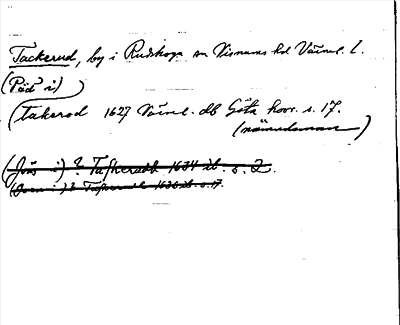 Tackerud, by i Rudskoga sn Visnums hd Värml. l.
(Päd i)
(Takerod 1627 Värml. db Göta hovr. s. 17.
(nämndeman)
(Jöns i) ? Tafkerudh 1634 ib. s. 2.
1636 ib. s. 17.